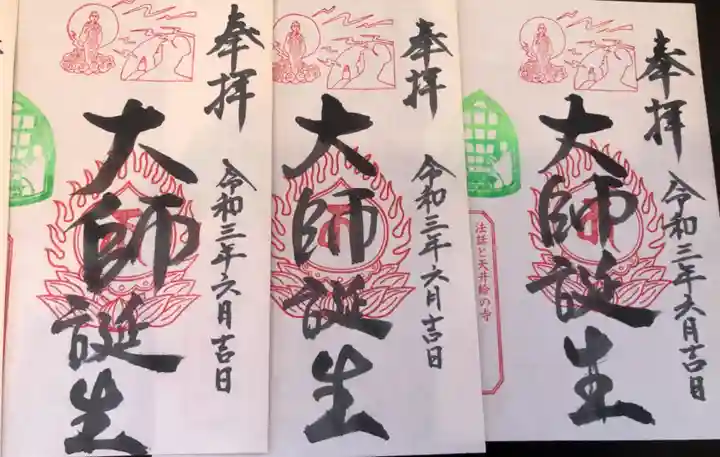 奉拝
大師誕生
令和三年六月吉日
奉拝
大師誕生
令和三年六月吉日
奉拝
大師誕生
令和三年六月吉日
法話と天井絵の寺